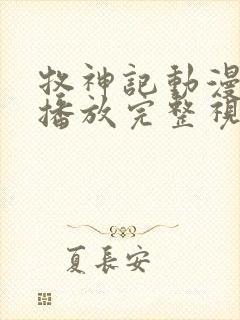 牧神記動漫
播放完整視
夏長安